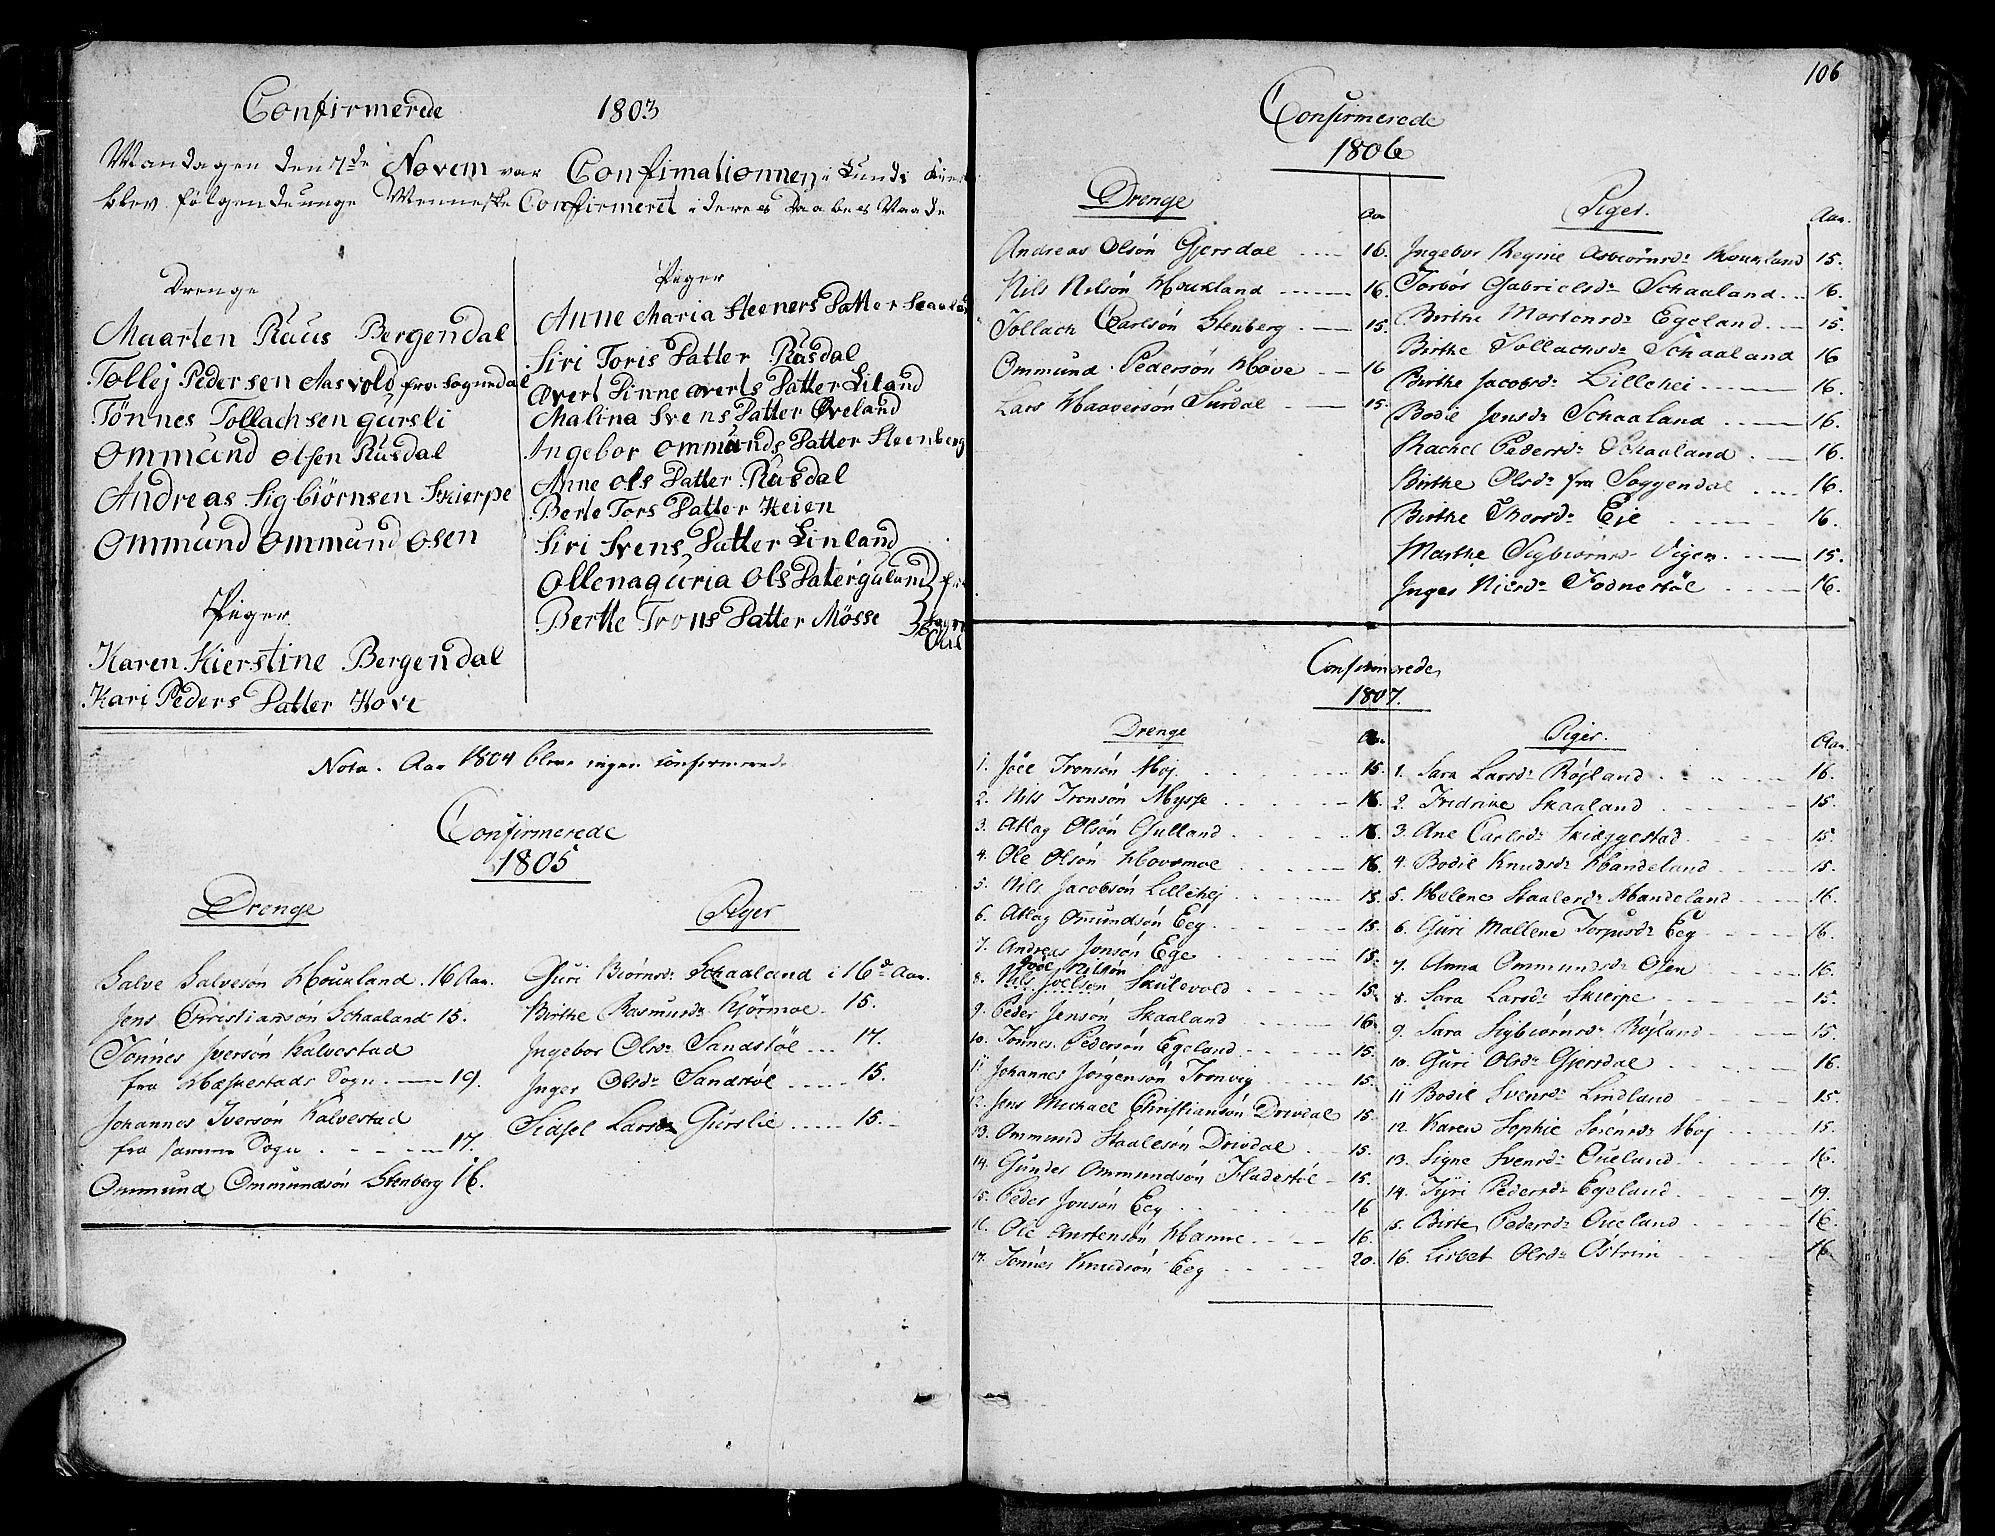 Confirmerede 1803
Mandagen den 7de Novem var Confimationnen i Lunds Kir
blev følgende unge Menneske Confirmerit i deres Daabes Naade
Drenge
Maarten Ruus Bergendal
Tollej Pedersen Aasvold fra Sogndal
Tönnes Tollachsen gursli
Ommund olsen Rusdal
Andreas Sigbiörnsen Skierpe
Ommund ommund osen
Piger
Karen Kierstine Bergendal
Kari Peders Datter Hove
Piger
Anne Maria Steeners Datter
Siri Toris Datter Rusdal
overt Pinne overts Datter Liland
Malina Svens Datter Øveland
Ingebor ommunds Datter Steenberg
Anne ols Datter Rusdal
Berte Tors Datter Heien
Siri Svens Datter Linland
Ollenaguria Ols Dater guland
Berthe Trons Datter Mösse
Nota. Aar 1804 bleve ingen confirmered.
Confirmerede
1805
Drenge
Salve Salvesón Houkland. 16 Aar.
Jens Christiansón Schaaland 15.
Tónnes Iversón Kalvestad
fra Hæskestads Sogn. 19.
Johannes Iversón Kalvestad
fra samme Sogn 17.
Ommund Ommundsón Stenberg 16.
Piger
Guri Biórnsdr Schaaland i 16de Aar.
Birthe Rasmusdr Kjórmoe. 15.
Ingebor Olsdr Sandstöl 17.
Inger Olsdr Sandstöl 15.
Sidsel Larsdr Gurslie 15.
106
Confirmerede
1806
Drenge Aar
Andreas Olsón Gjersdal 16.
Nils Nilsón Houkland 16.
Tollach Carlsón Stenberg 15.
Ommund Pedersón Hove 16
Lars Haaversón Surdal 15.
Piger. Aar.
Ingebor Regine Asbiórnsdr Houkland 15.
Torbór Gabrielsdr Schaaland 16.
Birthe Mortensdr Egeland 15.
Birthe Tollachsdr Schaaland 16
Birthe Jacobsdr Lillehei 16.
Bodil Jensdr Schaaland 16.
Rachel Pedersdr Schaaland 16.
Birthe Olsdr fra Soggendal 16.
Birthe Thorsdr Eie 16.
Marthe Sigbiórnsdr Vigen 15.
Inger Nilsdr Fodnestöl 16.
Confirmerede
1807.
Drenge Aar.
1. Jöel Tronsón Moj 15.
2. Nils Tronsón Mysse 16.
3. Atlag Olsón Gulland 16.
4. Ole Olsón Hovsmoe 16.
5. Nils Jacobsón Lillehej 15.
6. Atlag Omundsón Eeg 15.
7. Andreas Jonsón Ege 15.
Joel Nilsón
8. Nils Joelsón Skulevold 15.
9. Peder Jensón Skaaland 16.
10. Tónnes Pedersón Egeland 15.
11 Johannes Jórgensón Tronvig 15.
12. Jens Michael Christiansón Drivdal 15.
13. Ommund Staalesón Drivdal 15.
14. Gunder Ommundsón Fladestöl 15.
15. Peder Jonsón Eeg 16
16. Ole Anstensón Hamre 16.
17. Tónnes Knudsón Eeg 20.
Piger. Aar.
1. Sara Larsdr Röjland 16.
2. Fredrike Skaaland 15.
3. Ane Carlsdr Skieggestad 15.
4. Bodil Knudsdr Handeland 15.
5. Helene Staalesdr Handeland 16.
6. Guri Mallene Torgusdr Eeg 16.
7. Anna Ommundsdr Osen 16.
8. Sara Larsdr Skierpe 15.
9. Sara Sigbiórnsdr Röjland 15.
10. Guri Olsdr Gjersdal 16.
11 Bodil Svensdr Lindland 15.
12. Karen Sophie Sörensdr Moj 15.
13. Signe Svensdr Oueland 16.
14. Tyri Pedersdr Egeland 19.
15. Birte Pedersdr Oueland 16.
16. Lisbet Olsdr Östrem 16.